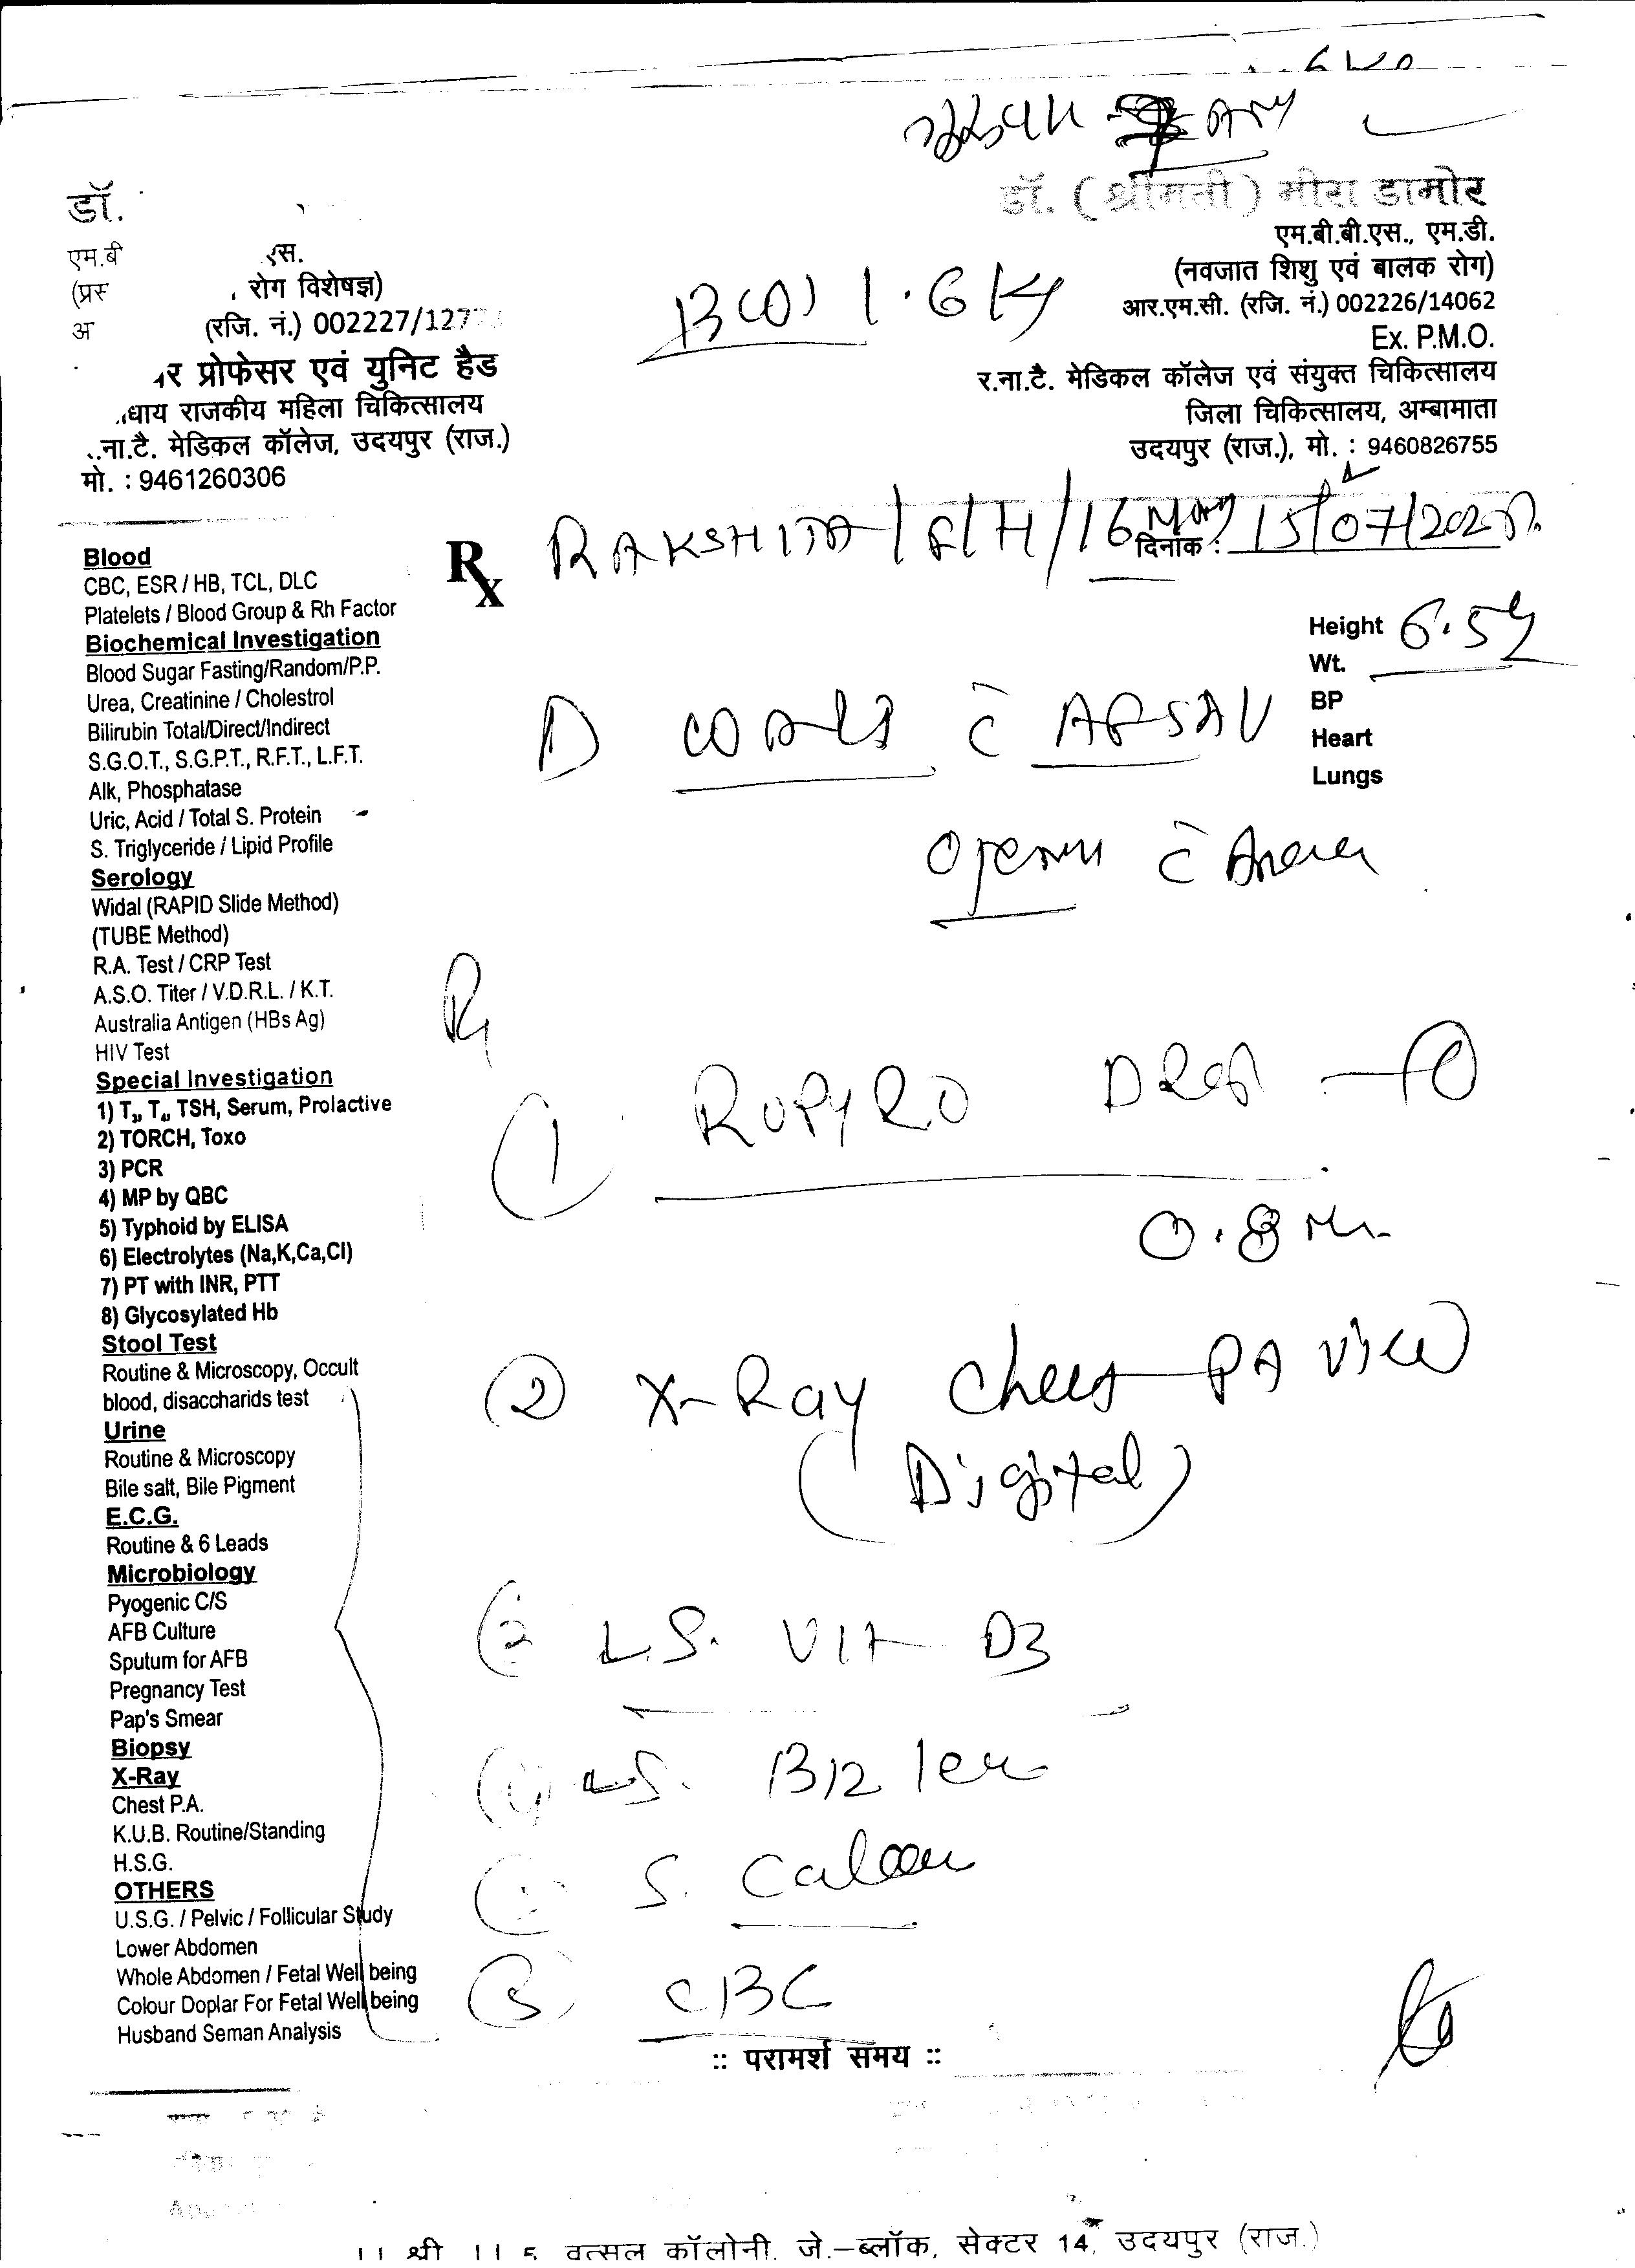 डॉ.
एम.बी एस.
(प्रस रोग विशेषज्ञ)
अ (रजि. नं.) 002227/1277
र प्रोफेसर एवं युनिट हैड
धाय राजकीय महिला चिकित्सालय
.ना.टै. मेडिकल कॉलेज, उदयपुर (राज.)
मो. : 9461260306
B(W) 1.6 Kg
डॉ. (श्रीमती) मीरा डामोर
एम.बी.बी.एस., एम.डी.
(नवजात शिशु एवं बालक रोग)
आर.एम.सी. (रजि. नं.) 002226/14062
Ex. P.M.O.
र.ना.टै. मेडिकल कॉलेज एवं संयुक्त चिकित्सालय
जिला चिकित्सालय, अम्बामाता
उदयपुर (राज.), मो. : 9460826755
Rx RAKSHITA दिनांक : 15/07/202
Height 6.5
Wt.
BP
Heart
Lungs
Blood
CBC, ESR / HB, TCL, DLC
Platelets / Blood Group & Rh Factor
Biochemical Investigation
Blood Sugar Fasting/Random/P.P.
Urea, Creatinine / Cholestrol
Bilirubin Total/Direct/Indirect
S.G.O.T., S.G.P.T., R.F.T., L.F.T.
Alk, Phosphatase
Uric, Acid / Total S. Protein
S. Triglyceride / Lipid Profile
Serology
Widal (RAPID Slide Method)
(TUBE Method)
R.A. Test / CRP Test
A.S.O. Titer / V.D.R.L. / K.T.
Australia Antigen (HBs Ag)
HIV Test
Special Investigation
1) T₃, T₄, TSH, Serum, Prolactive
2) TORCH, Toxo
3) PCR
4) MP by QBC
5) Typhoid by ELISA
6) Electrolytes (Na,K,Ca,Cl)
7) PT with INR, PTT
8) Glycosylated Hb
Stool Test
Routine & Microscopy, Occult
blood, disaccharids test
Urine
Routine & Microscopy
Bile salt, Bile Pigment
E.C.G.
Routine & 6 Leads
Microbiology
Pyogenic C/S
AFB Culture
Sputum for AFB
Pregnancy Test
Pap's Smear
Biopsy
X-Ray
Chest P.A.
K.U.B. Routine/Standing
H.S.G.
OTHERS
U.S.G. / Pelvic / Follicular Study
Lower Abdomen
Whole Abdomen / Fetal Well being
Colour Doplar For Fetal Well being
Husband Seman Analysis
1 ROPYRO DROP
0.8 ml
2 X-Ray Chest PA View
(Digital)
L.S. VIT D3
S. B12
S.
CBC
:: परामर्श समय ::
।। श्री ।। 5 वत्सल कॉलोनी, जे.–ब्लॉक, सेक्टर 14, उदयपुर (राज.)